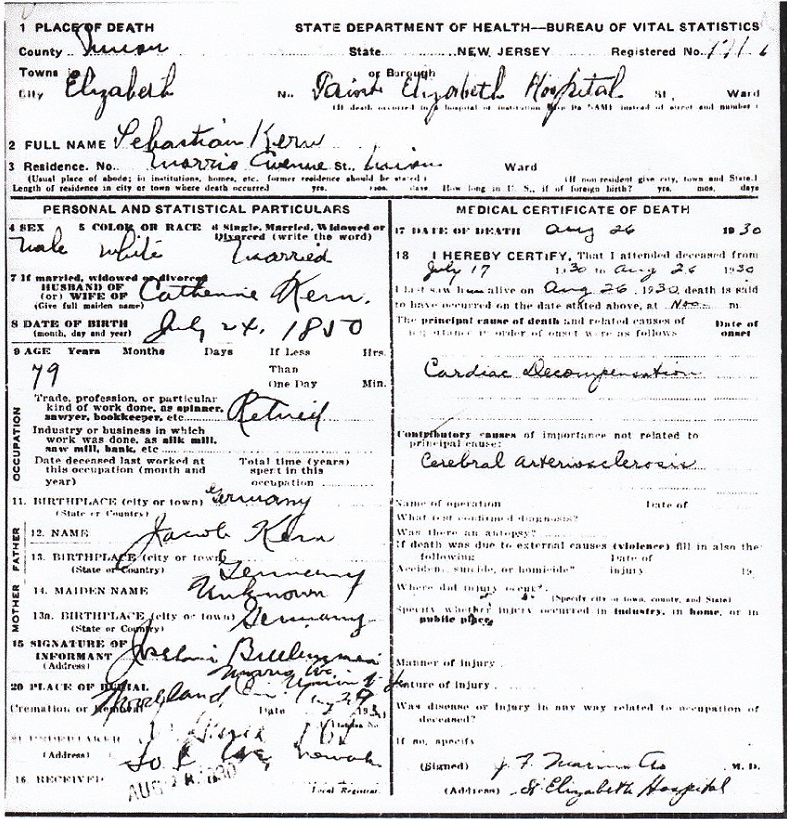 1 PLACE OF DEATH
STATE DEPARTMENT OF HEALTH—BUREAU OF VITAL STATISTICS
County Union State NEW JERSEY Registered No.
Towns or Borough
City Elizabeth No. Saint Elizabeth Hospital St., Ward
(If death occurred in a hospital or institution give its NAME instead of street and number)
2 FULL NAME Sebastian Kern
3 Residence. No. Morris Avenue St., Union Ward
(Usual place of abode; in institutions, homes, etc. former residence should be stated) (If non resident give city, town and State.)
Length of residence in city or town where death occurred yrs. mos. days How long in U. S., if of foreign birth? yrs. mos. days
PERSONAL AND STATISTICAL PARTICULARS
4 SEX 5 COLOR OR RACE 6 Single, Married, Widowed or
Divorced (write the word)
Male White Married
7 If married, widowed or divorced
HUSBAND OF
(or) WIFE OF Catherine Kern.
(Give full maiden name)
8 DATE OF BIRTH July 24, 1850
(month, day and year)
9 AGE Years Months Days If Less Hrs.
79 Than
One Day Min.
OCCUPATION
Trade, profession, or particular
kind of work done, as spinner,
sawyer, bookkeeper, etc. Retired
Industry or business in which
work was done, as silk mill,
saw mill, bank, etc
Date deceased last worked at Total time (years)
this occupation (month and spent in this
year) occupation
11. BIRTHPLACE (city or town) Germany
(State or Country)
FATHER
12. NAME Jacob Kern
13. BIRTHPLACE (city or town)
(State or Country) Germany
MOTHER
14. MAIDEN NAME Unknown
13a. BIRTHPLACE (city or town) Germany
(State or Country)
15 SIGNATURE OF
INFORMANT
(Address) Morris Av. Union N.J.
20 PLACE OF BURIAL
Cremation or Removal Date 1930
UNDERTAKER
(Address) Newark
16 RECEIVED Local Registrar.
MEDICAL CERTIFICATE OF DEATH
17 DATE OF DEATH Aug 26 1930
18 I HEREBY CERTIFY, That I attended deceased from
July 17 1930 to Aug 26 1930
I last saw him alive on Aug 26, 1930, death is said
to have occurred on the date stated above, at Noon m.
The principal cause of death and related causes of Date of
importance in order of onset were as follows onset
Cardiac Decompensation
Contributory causes of importance not related to
principal cause:
Cerebral arteriosclerosis
Name of operation Date of
What test confirmed diagnosis?
Was there an autopsy?
If death was due to external causes (violence) fill in also the
following: Date of
Accident, suicide, or homicide? injury 19
Where did injury occur?
(Specify city or town, county, and State)
Specify whether injury occurred in industry, in home, or in
public place.
Manner of injury
Nature of injury
Was disease or injury in any way related to occupation of
deceased?
If no, specify
(Signed) M. D.
(Address) St Elizabeth Hospital